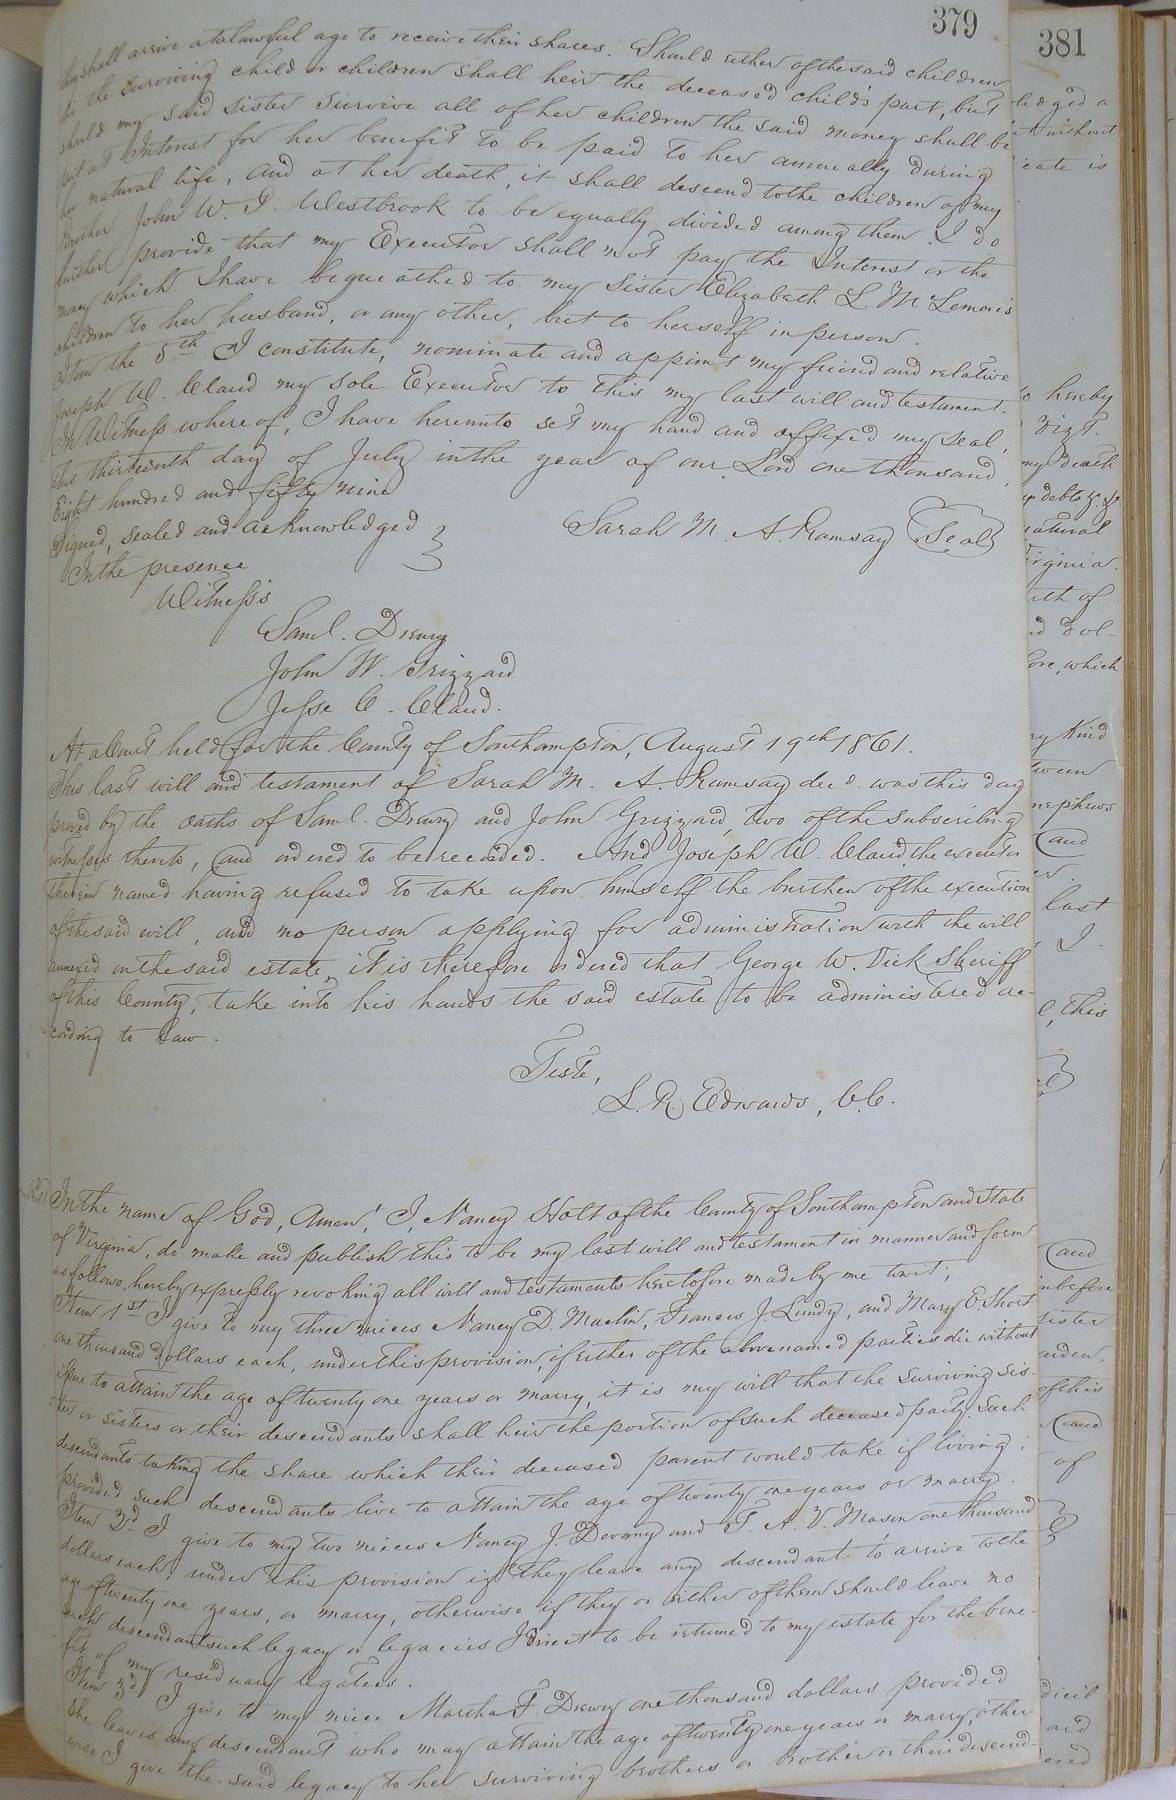 379
they shall arrive at a lawful age to receive their shares. Should either of the said children
die the surviving child or children shall heir the deceased child's part, but
should my said sister survive all of her children the said money shall be
put at Interest for her benefit to be paid to her annually during
her natural life, and at her death, it shall descend to the children of my
brother John W. D. Westbrook to be equally divided among them. I do
further provide that my Executor shall not pay the Interest or the
money which I have bequeathed to my sister Elizabeth L. McLemore's
children to her husband, or any other, but to herself in person.
Item the 5th I constitute, nominate and appoint my friend and relative
Joseph W. Claud my sole Executor to this my last will and testament.
In Witness where of, I have hereunto set my hand and affixed my seal,
this thirteenth day of July in the year of our Lord one thousand,
Eight hundred and fifty nine
Signed, sealed and acknowledged
Sarah M. A. Ramsay Seal
In the presence
Witness
Saml. Drewry
John W. Grizzard
Jesse C. Claud.
At a Court held for the County of Southampton, August 19th 1861.
This last will and testament of Sarah M. A. Ramsay decd. was this day
proved by the oaths of Saml. Drewry and John Grizzard, two of the subscribing
witnesses thereto, and ordered to be recorded. And Joseph W. Claud, the executor
therein named having refused to take upon himself the burthen of the execution
of the said will, and no person applying for administration with the will
annexed on the said estate, it is therefore ordered that George W. Vick Sheriff
of this County, take into his hands the said estate to be administered ac-
cording to law.
Teste,
L. R. Edwards, C.C.
In the name of God, Amen! I, Nancy Holt of the County of Southampton and State
of Virginia, do make and publish this to be my last will and testament in manner and form
as follows, hereby expressly revoking all will and testaments heretofore made by me to wit;
Item 1st I give to my three nieces Nancy D. Maclin, Frances J. Lundy, and Mary E. Short
one thousand dollars each, under this provision, if either of the above named parties die without
issue to attain the age of twenty one years or marry, it is my will that the surviving sis-
ter or sisters or their descendants shall heir the portion of such deceased party. Such
descendants taking the share which their deceased parent would take if living;
provided such descendants live to attain the age of twenty one years or marry.
Item 2nd I give to my two nieces Nancy J. Devany and T. A. V. Mason one thousand
dollars each, under this provision if they leave any descendant to arrive to the
age of twenty one years, or marry, otherwise, if they or either of them should leave no
such descendant such legacy or legacies I direct to be returned to my estate for the bene-
fit of my residuary legatees.
Item 3d I give to my niece Martha F. Drewry one thousand dollars provided
she leaves any descendant who may attain the age of twenty one years or marry, other
wise I give the said legacy to her surviving brothers or brother or their descend-
381
ledged a
without
icate is
hereby
Vizt.
my death
debts &c
natural
Virginia.
ith of
dol-
fore, which
ry kind
tween
nephews
and
last
I
this
and
inbefore
sister
of his
and
of
dicil
aid